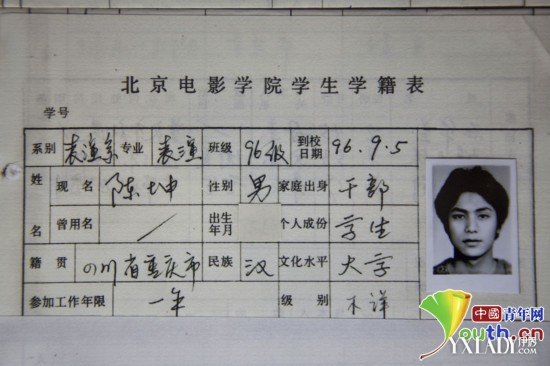 北京电影学院学生学籍表
学号
系别 表演系 专业 表演 班级 96级 到校日期 96.9.5
姓名 现名 陈坤 性别 男 家庭出身 干部
曾用名 / 出生年月 个人成份 学生
籍贯 四川省重庆市 民族 汉 文化水平 大学
参加工作年限 一年 级别 不详
中國青年网
youth.cn
YXLADY伊秀